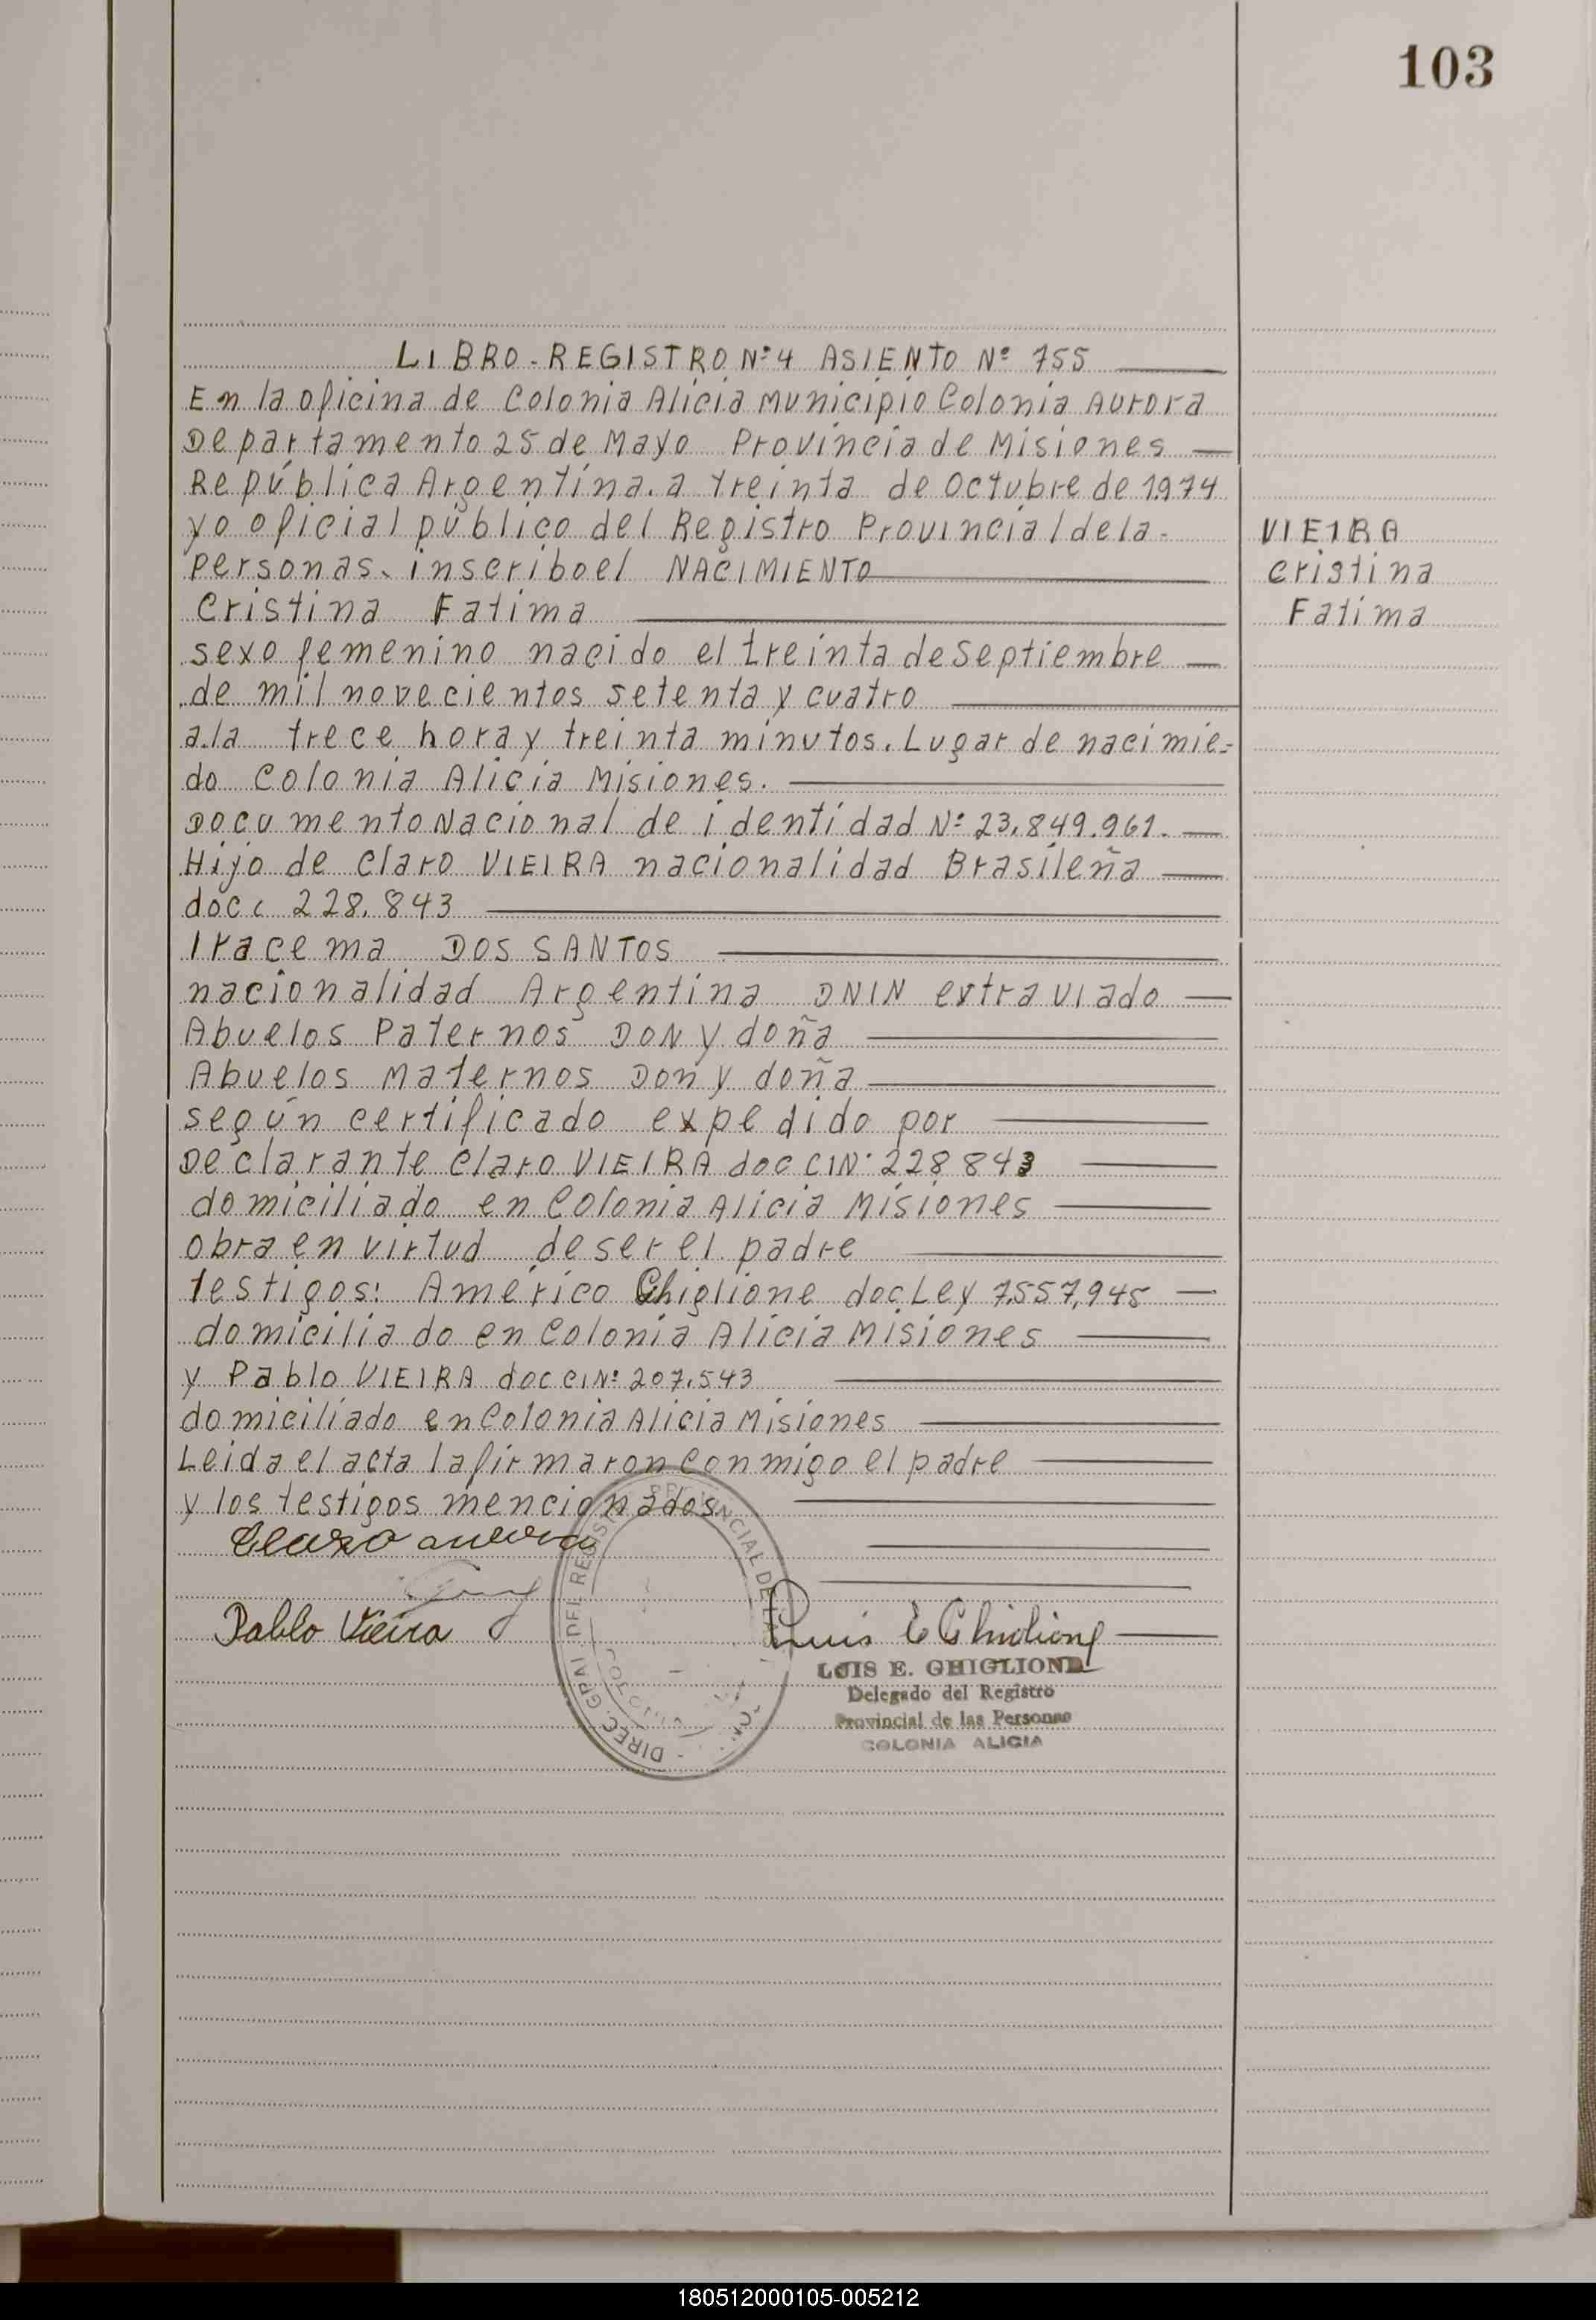 103
LIBRO-REGISTRO Nº 4 ASIENTO Nº 755
En la oficina de Colonia Alicia Municipio Colonia Aurora
Departamento 25 de Mayo Provincia de Misiones
República Argentina. a treinta de Octubre de 1974
yo oficial público del Registro Provincial de la-
personas. inscribo el NACIMIENTO
Cristina Fatima
sexo femenino nacido el treinta de Septiembre
de mil novecientos setenta y cuatro
a la trece hora y treinta minutos. Lugar de nacimie=
do Colonia Alicia Misiones.
Documento Nacional de identidad Nº 23.849.961.
Hijo de Claro VIEIRA nacionalidad Brasileña
doc c 228.843
Iracema DOS SANTOS
nacionalidad Argentina DNIN extraviado
Abuelos Paternos DON y doña
Abuelos Maternos Don y doña
según certificado expedido por
Declarante Claro VIEIRA doc CIN· 228843
domiciliado en Colonia Alicia Misiones
obra en virtud de ser el padre
testigos: Américo Ghiglione doc Ley 7.557,945
domiciliado en Colonia Alicia Misiones
y Pablo VIEIRA doc CINº 207.543
domiciliado en Colonia Alicia Misiones
Leida el acta la firmaron conmigo el padre
y los testigos mencionados.
VIEIRA
Cristina
Fatima
Pablo Vieira
Luis E Ghiglione
DIREC. GRAL. DEL REGISTRO PROVINCIAL DE
LUIS E. GHIGLIONE
Delegado del Registro
Provincial de las Personas
COLONIA ALICIA
180512000105-005212